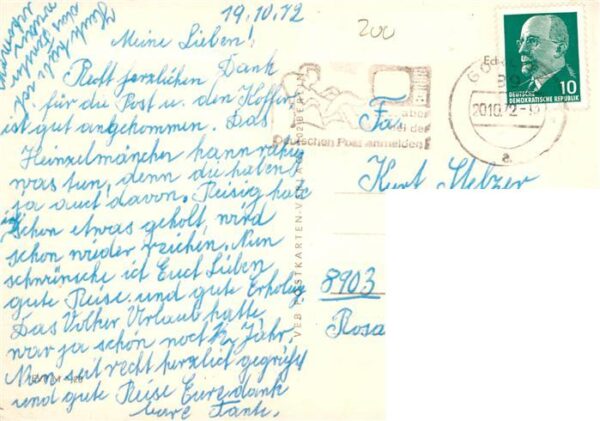 19.10.72
200
Meine Lieben!
Recht herzlichen Dank
für die Post u. den Koffer,
ist gut angekommen. Das
Heinzelmänchen kann ruhig
was tun, denn die haben
ja auch davon. Reisig habe
ich
schon etwas geholt, wird
schon wieder reichen. Nun
wünsche ich Euch Lieben
gute Reise und gute Erholung
Das Volker Urlaub hatte
war ja schon noch ½ Jahr.
Nun seit recht herzlich gegrüßt
und gute Reise Eure dank
bare Tante.
VEB POSTKARTEN-VERLAG
BERLIN
aber
bei der
Deutschen Post anmelden
20.10.72
a
10
DEUTSCHE
DEMOKRATISCHE REPUBLIK
Fa.
Kurt Melzer
8903
Rosa